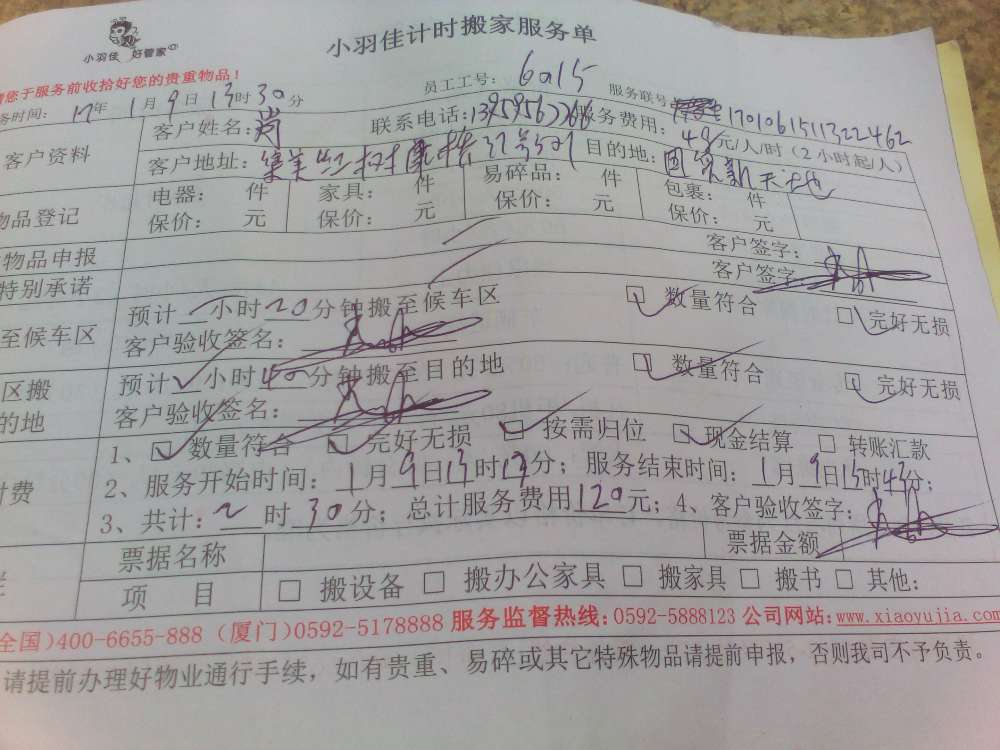 小羽佳 好管家
小羽佳计时搬家服务单
您于服务前收拾好您的贵重物品!
员工工号: 6015
服务联号: 170106151132246​2
务时间: 17年 1月9日 13时30分
客户资料
客户姓名: 尚
联系电话:
服务费用: 48元/人/时 (2小时起/人)
客户地址: 集美红树康桥
目的地: 国贸新天地
物品登记
电器: 件 家具: 件 易碎品: 件 包裹: 件
保价: 元 保价: 元 保价: 元 保价: 元
物品申报
客户签字:
特别承诺
客户签字:
至候车区
预计 小时20分钟搬至候车区 数量符合 完好无损
客户验收签名:
区搬
的地
预计 小时40分钟搬至目的地 数量符合 完好无损
客户验收签名:
付费
1、 数量符合 完好无损 按需归位 现金结算 转账汇款
2、服务开始时间: 1月9日13时13分; 服务结束时间: 1月9日15时43分;
3、共计: 2时30分; 总计服务费用120元; 4、客户验收签字:
票据名称 票据金额
项 目 搬设备 搬办公家具 搬家具 搬书 其他:
全国)400-6655-888 (厦门)0592-5178888 服务监督热线:0592-5888123 公司网站:www.xiaoyujia.com
请提前办理好物业通行手续，如有贵重、易碎或其它特殊物品请提前申报，否则我司不予负责。